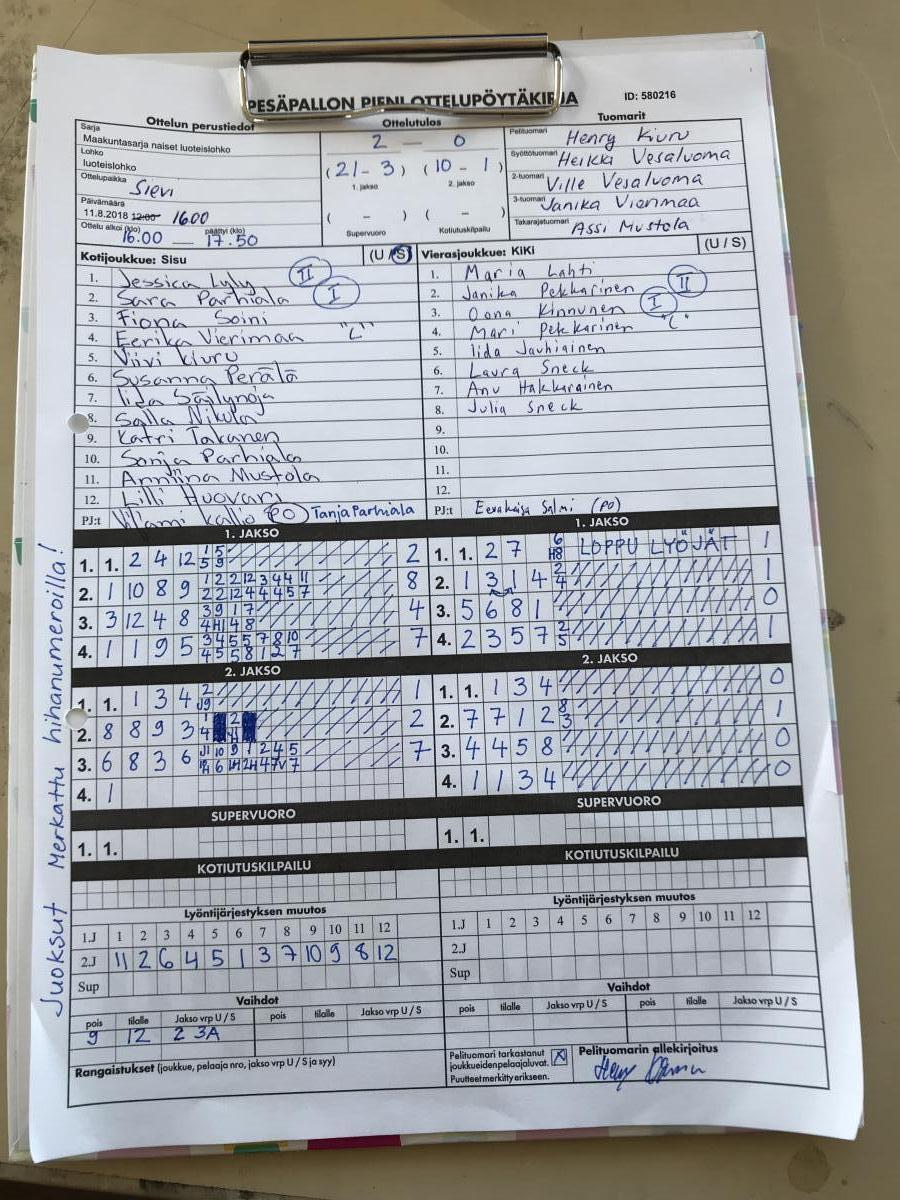 PESÄPALLON PIENI OTTELUPÖYTÄKIRJA
ID: 580216
Ottelun perustiedot
Sarja
Maakuntasarja naiset luoteislohko
Lohko
luoteislohko
Ottelupaikka Sievi
Päivämäärä
11.8.2018 12:00 1600
Ottelu alkoi (klo) päättyi (klo)
16.00 — 17.50
Ottelutulos
2 — 0
(21 - 3) (10 - 1)
1. jakso 2. jakso
( - ) ( - )
Supervuoro Kotiutuskilpailu
Tuomarit
Pelituomari Henry Kiuru
Syöttötuomari Heikki Vesaluoma
2-tuomari Ville Vesaluoma
3-tuomari Janika Vierimaa
Takarajatuomari Assi Mustola
Kotijoukkue: Sisu (U / S)
1. Jessica Lyly II
2. Sara Parhiala I
3. Fiona Soini
4. Eerika Vierimaa "L"
5. Viivi Kiuru
6. Susanna Perälä
7. Iida Säilynoja
8. Salla Nikula
9. Katri Takanen
10. Sonja Parhiala
11. Anniina Mustola
12. Lilli Huovari
PJ:t Vilami Kallio (PO) Tanja Parhiala
Vierasjoukkue: KiKi (U / S)
1. Maria Lahti
2. Janika Pekkarinen II
3. Oona Kinnunen I
4. Mari Pekkarinen "C"
5. Iida Jauhiainen
6. Laura Sneck
7. Anu Hakkarainen
8. Julia Sneck
9.
10.
11.
12.
PJ:t Eevakaisa Salmi (PO)
Juoksut Merkattu hihanumeroilla!
1. JAKSO
1. 1. 2 4 12 2
2. 1 10 8 9 8
3. 3 12 4 8 4
4. 1 1 9 5 7
1. JAKSO
1. 1. 2 7 6 H8 LOPPU LYÖJÄT 1
2. 1 3 1 4 2 4 1
3. 5 6 8 1 0
4. 2 3 5 7 2 5 1
2. JAKSO
1. 1. 1 3 4 1
2. 8 8 9 3 2
3. 6 8 3 6 7
4. 1
2. JAKSO
1. 1. 1 3 4 0
2. 7 7 1 2 8 3 1
3. 4 4 5 8 0
4. 1 1 3 4 0
SUPERVUORO
1. 1.
SUPERVUORO
1. 1.
KOTIUTUSKILPAILU
KOTIUTUSKILPAILU
Lyöntijärjestyksen muutos
1.J 1 2 3 4 5 6 7 8 9 10 11 12
2.J 11 2 6 4 5 1 3 7 10 9 8 12
Sup
Lyöntijärjestyksen muutos
1.J 1 2 3 4 5 6 7 8 9 10 11 12
2.J
Sup
Vaihdot
pois tilalle Jakso vrp U / S pois tilalle Jakso vrp U / S
9 12 2 3A
Vaihdot
pois tilalle Jakso vrp U / S pois tilalle Jakso vrp U / S
Rangaistukset (joukkue, pelaaja nro, jakso vrp U / S ja syy)
Pelituomari tarkastanut
joukkueiden pelaajaluvat. X
Puutteet merkitty erikseen.
Pelituomarin allekirjoitus